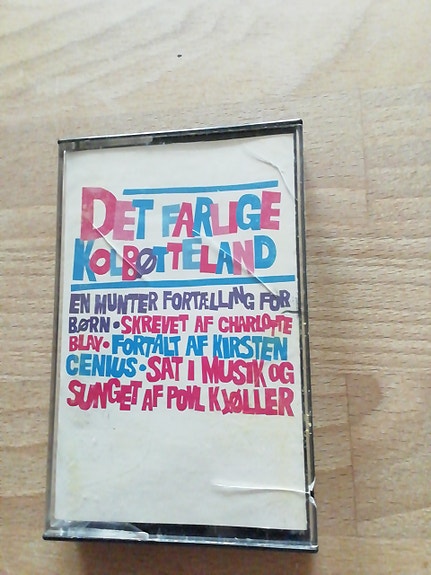 DET FARLIGE
KOLBØTTELAND
EN MUNTER FORTÆLLING FOR
BØRN • SKREVET AF CHARLOTTE
BLAY • FORTALT AF KIRSTEN
CENIUS • SAT I MUSIK OG
SUNGET AF POVL KJØLLER